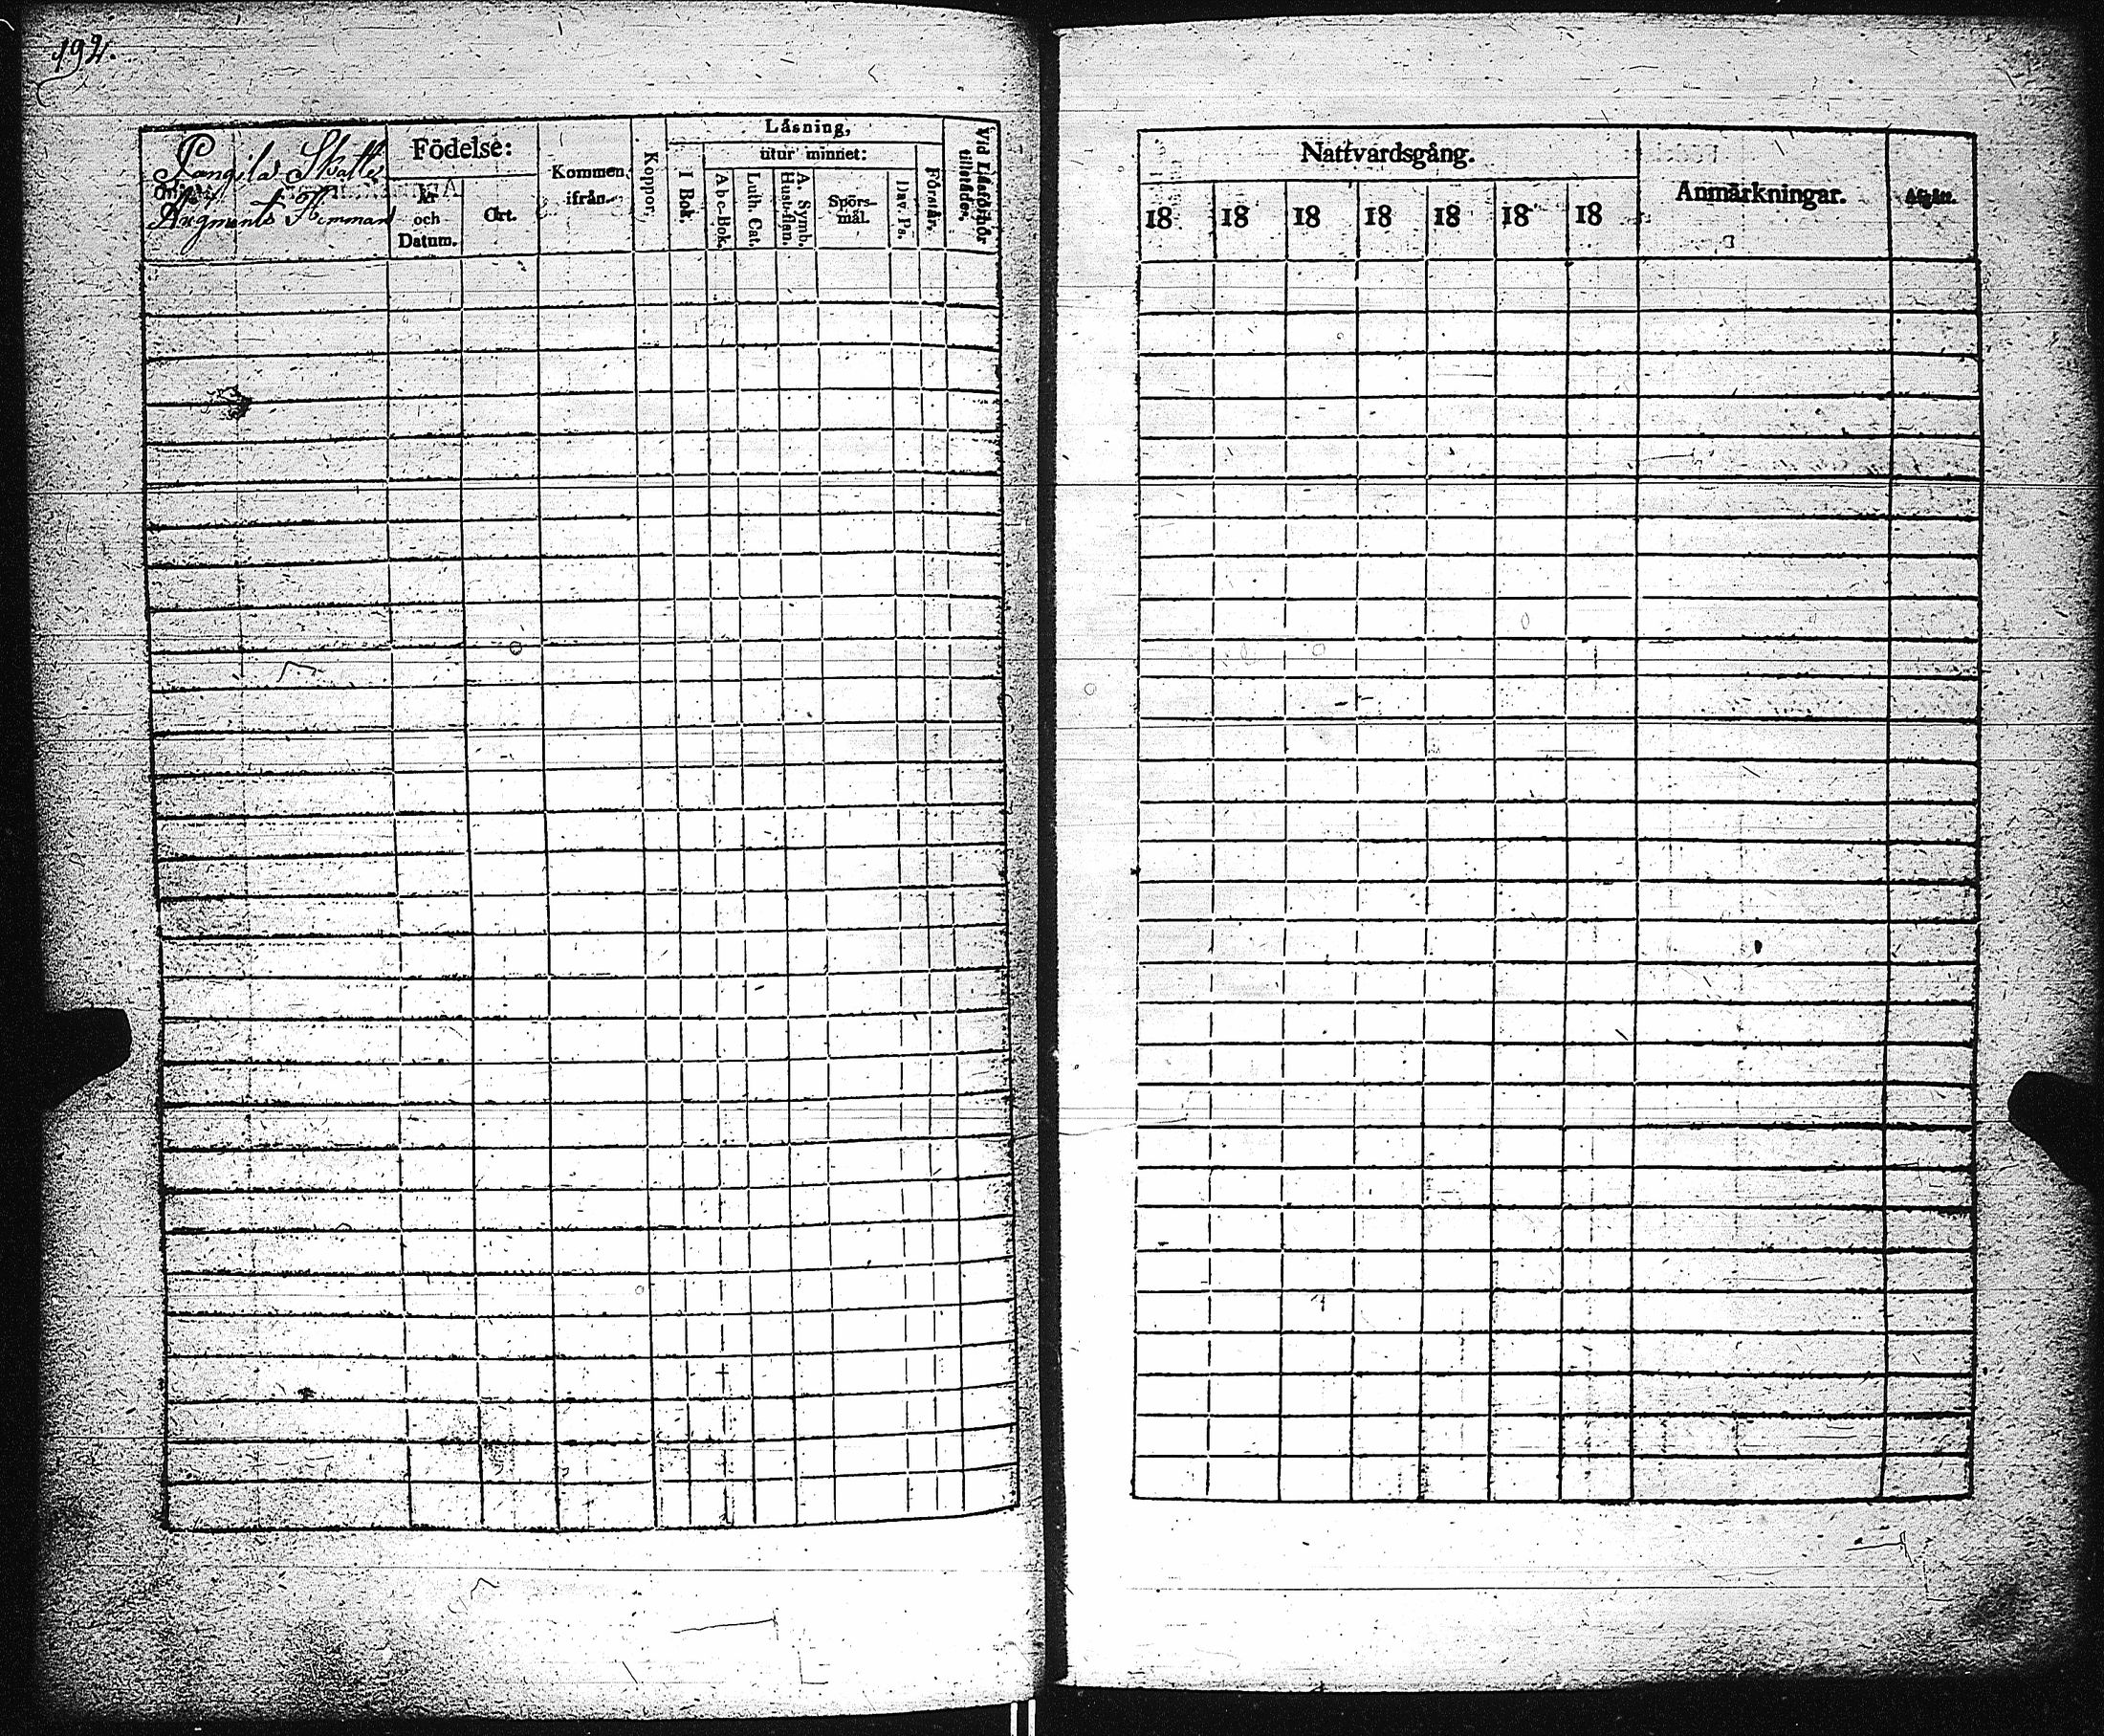 192.
Pangila Skatte
Augments Hemman
Födelse:
År och Datum.
Ort.
Kommen ifrån.
Koppor.
Läsning,
I Bok.
utur minnet:
Abc-Bok.
Luth. Cat.
A. Symb. Hust-flan.
Spörs-mål.
Dav. Ps.
Förstår.
Vid Läsförhör tillstädes.
Nattvardsgång.
18 18 18 18 18 18 18
Anmärkningar.
Afgått.